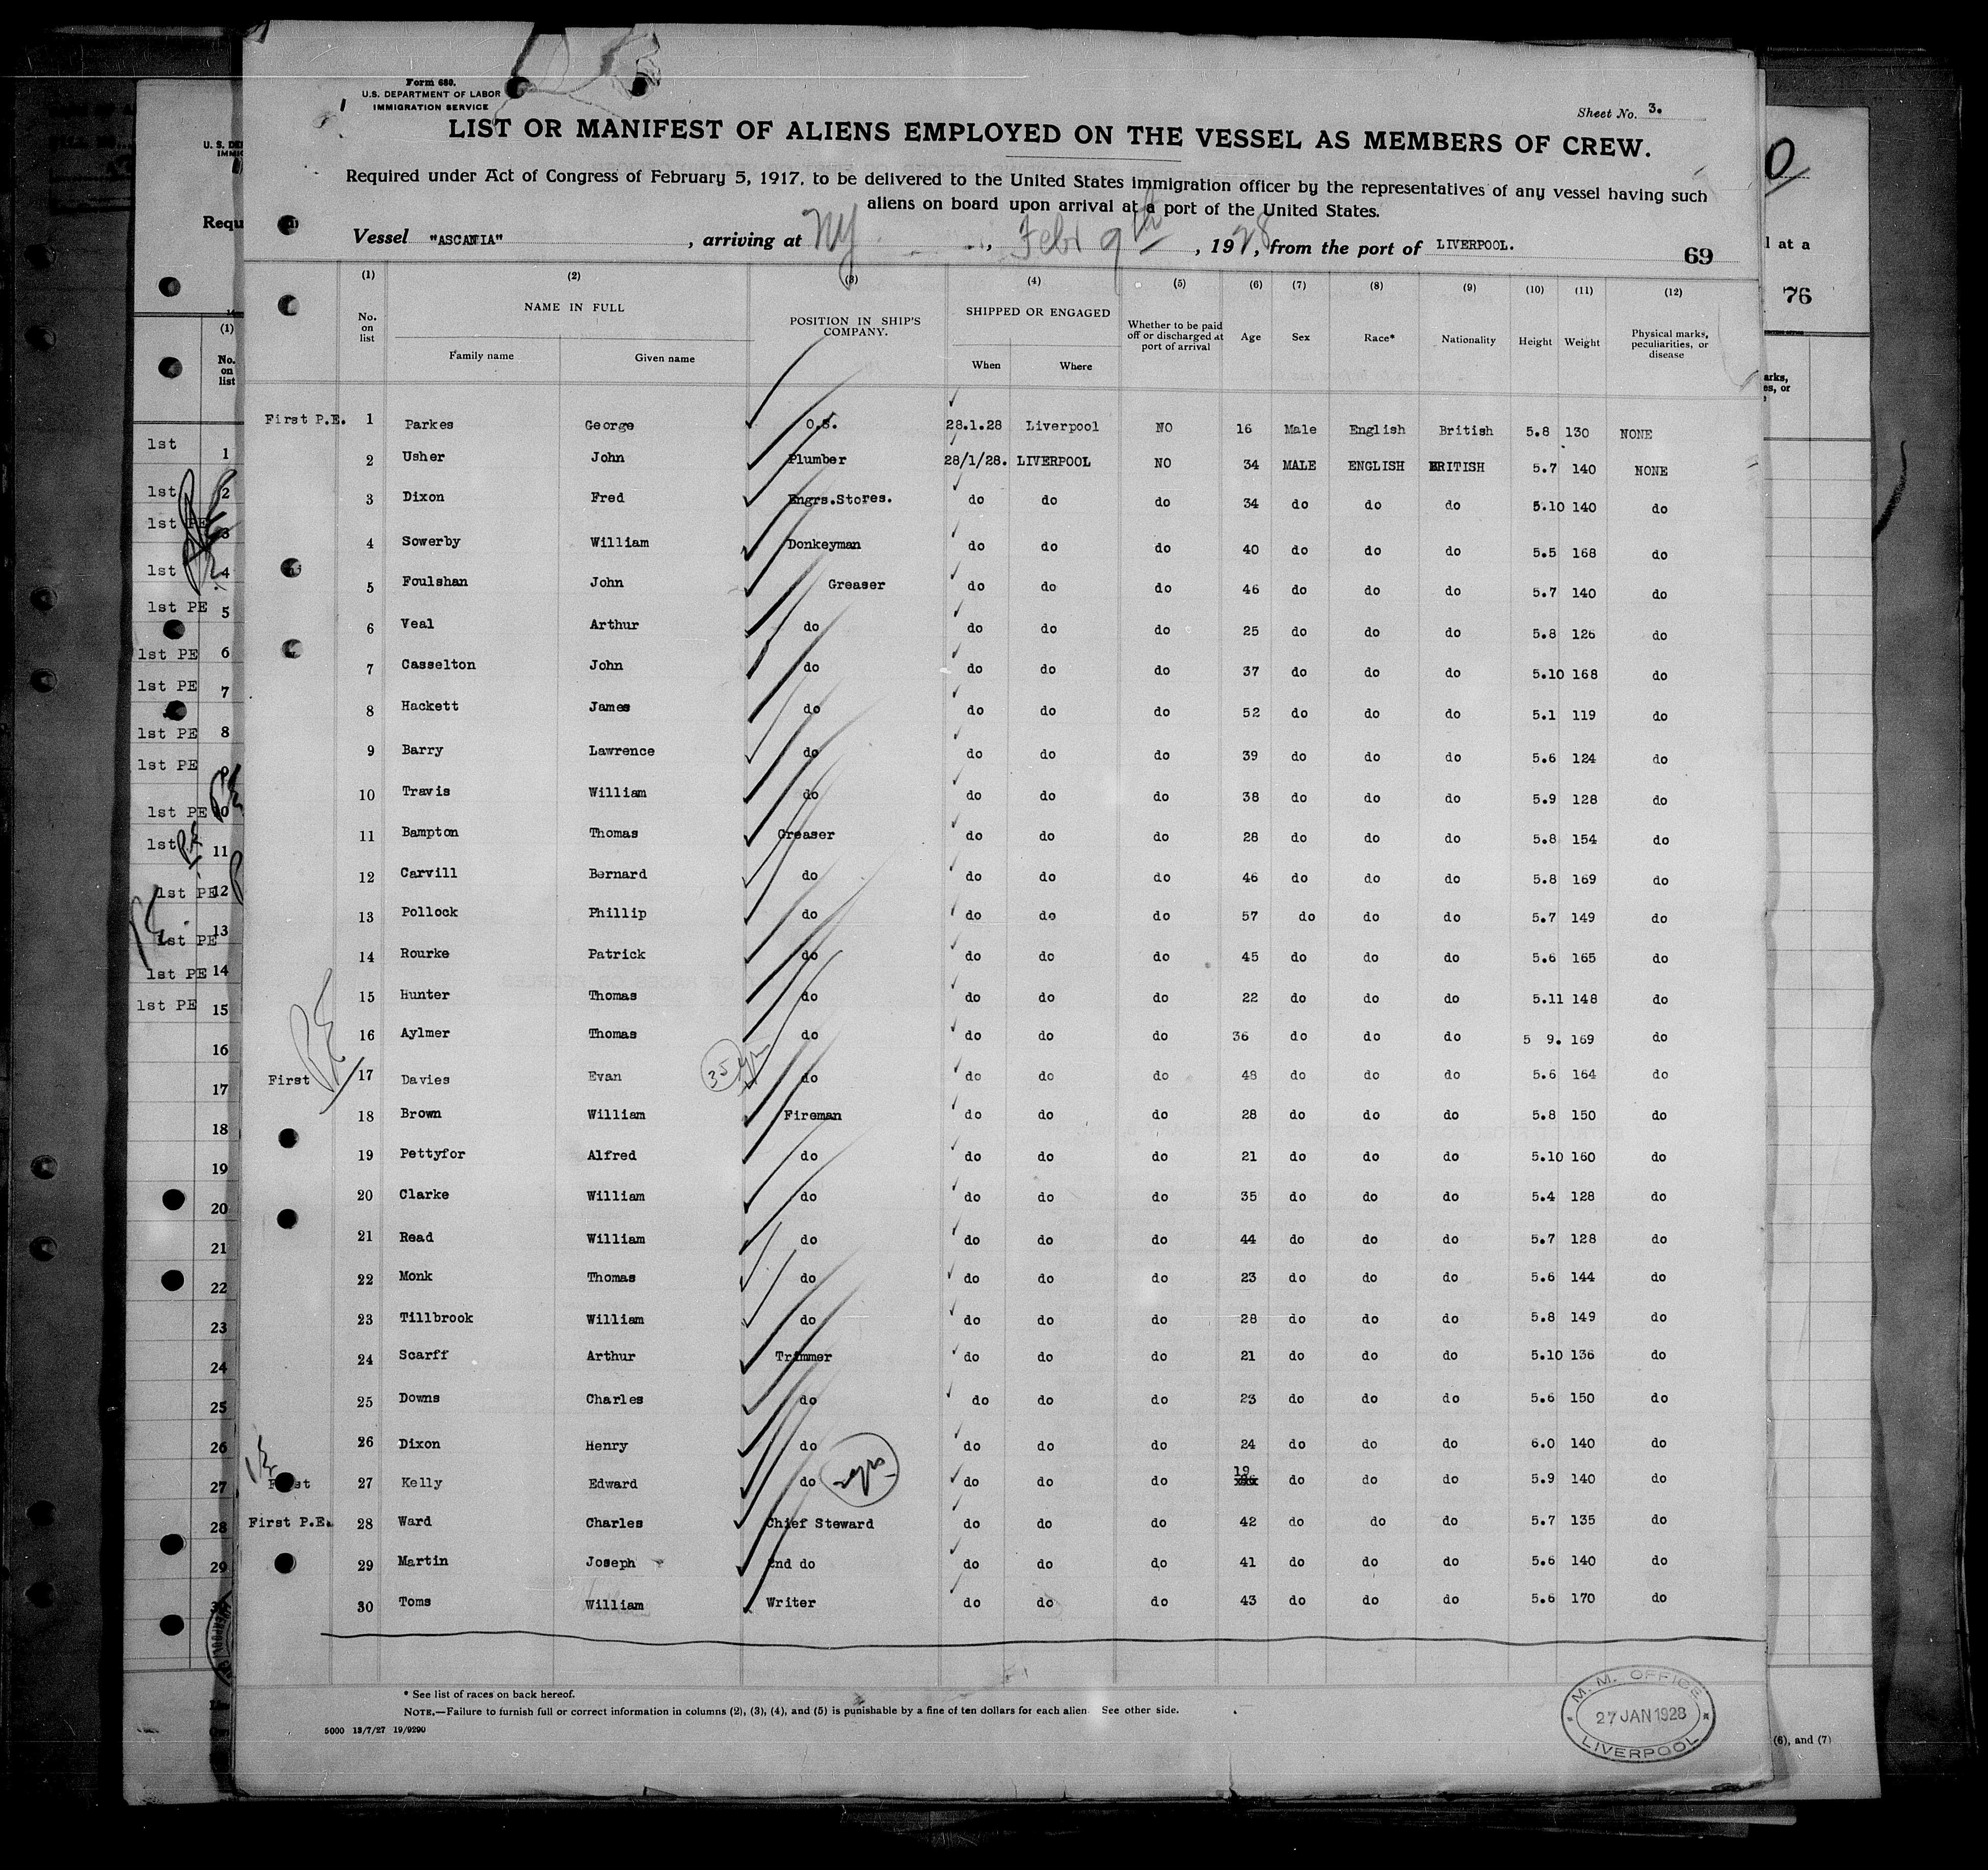 Form 680.
U.S. DEPARTMENT OF LABOR
IMMIGRATION SERVICE
Sheet No. 3.
LIST OR MANIFEST OF ALIENS EMPLOYED ON THE VESSEL AS MEMBERS OF CREW.
Required under Act of Congress of February 5, 1917, to be delivered to the United States immigration officer by the representatives of any vessel having such
aliens on board upon arrival at a port of the United States.
Vessel "ASCANIA", arriving at NY, Feb 9th, 1928, from the port of LIVERPOOL.
69
(1) (2) (3) (4) (5) (6) (7) (8) (9) (10) (11) (12)
No. on list NAME IN FULL Family name Given name POSITION IN SHIP'S COMPANY. SHIPPED OR ENGAGED When Where Whether to be paid off or discharged at port of arrival Age Sex Race* Nationality Height Weight Physical marks, peculiarities, or disease
First P.E. 1 Parkes George O.S. 28.1.28 Liverpool NO 16 Male English British 5.8 130 NONE
2 Usher John Plumber 28/1/28. LIVERPOOL NO 34 MALE ENGLISH BRITISH 5.7 140 NONE
3 Dixon Fred Engrs.Stores. do do do 34 do do do 5.10 140 do
4 Sowerby William Donkeyman do do do 40 do do do 5.5 168 do
5 Foulshan John Greaser do do do 46 do do do 5.7 140 do
6 Veal Arthur do do do do 25 do do do 5.8 126 do
7 Casselton John do do do do 37 do do do 5.10 168 do
8 Hackett James do do do do 52 do do do 5.1 119 do
9 Barry Lawrence do do do do 39 do do do 5.6 124 do
10 Travis William do do do do 38 do do do 5.9 128 do
11 Bampton Thomas Greaser do do do 28 do do do 5.8 154 do
12 Carvill Bernard do do do do 46 do do do 5.8 169 do
13 Pollock Phillip do do do do 57 do do do 5.7 149 do
14 Rourke Patrick do do do do 45 do do do 5.6 165 do
15 Hunter Thomas do do do do 22 do do do 5.11 148 do
16 Aylmer Thomas do do do do 36 do do do 5 9. 169 do
First PE 17 Davies Evan 35 yrs do do do do 48 do do do 5.6 164 do
18 Brown William Fireman do do do 28 do do do 5.8 150 do
19 Pettyfor Alfred do do do do 21 do do do 5.10 160 do
20 Clarke William do do do do 35 do do do 5.4 128 do
21 Read William do do do do 44 do do do 5.7 128 do
22 Monk Thomas do do do do 23 do do do 5.6 144 do
23 Tillbrook William do do do do 28 do do do 5.8 149 do
24 Scarff Arthur Trimmer do do do 21 do do do 5.10 136 do
25 Downs Charles do do do do 23 do do do 5.6 150 do
26 Dixon Henry do do do do 24 do do do 6.0 140 do
First PE 27 Kelly Edward do do do do 19 do do do 5.9 140 do
First P.E. 28 Ward Charles Chief Steward do do do 42 do do do 5.7 135 do
29 Martin Joseph 2nd do do do do 41 do do do 5.6 140 do
30 Toms William Writer do do do 43 do do do 5.6 170 do
* See list of races on back hereof.
NOTE.—Failure to furnish full or correct information in columns (2), (3), (4), and (5) is punishable by a fine of ten dollars for each alien. See other side.
5000 13/7/27 19/9290
M. M. OFFICE
27 JAN 1928
LIVERPOOL
U. S. DE
Requ
(1)
No.
on
list
1st 1
1st 2
1st PE 3
1st 4
1st PE 5
1st PE 6
1st PE 7
1st PE 8
1st PE 9
1st PE 10
1st PE 11
1st PE 12
1st PE 13
1st PE 14
1st PE 15
16
17
18
19
20
21
22
23
24
25
26
27
28
29
l at a
76
arks,
es, or
(6), and (7)